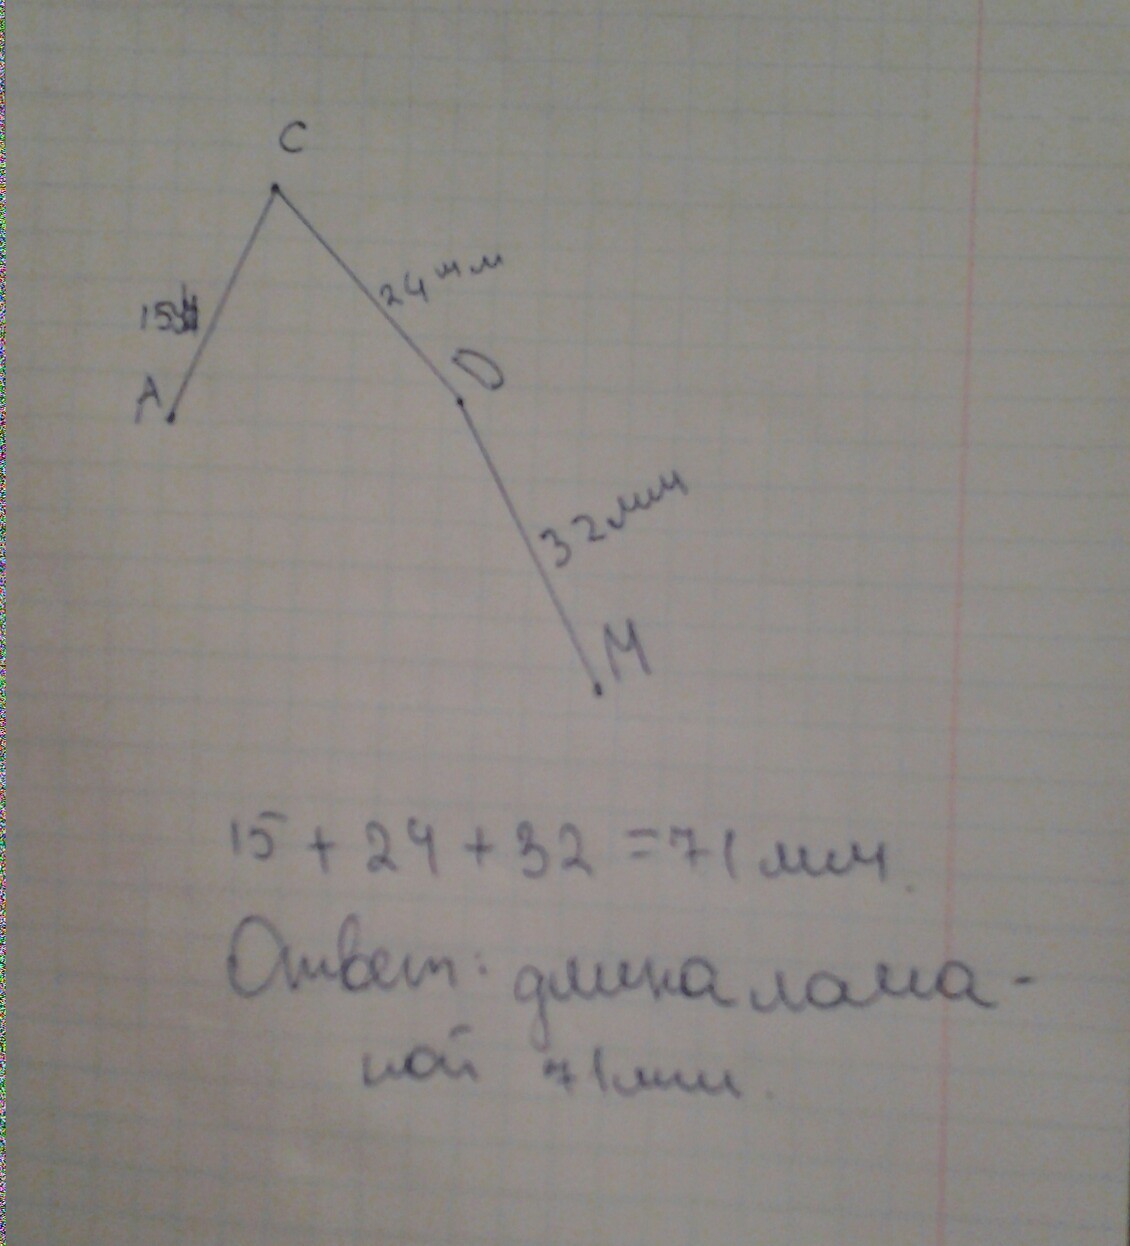 C
24 мм
15
D
A
32 мм
M
15 + 24 + 32 = 71 мм.
Ответ: длина лома-
ной 71 мм.